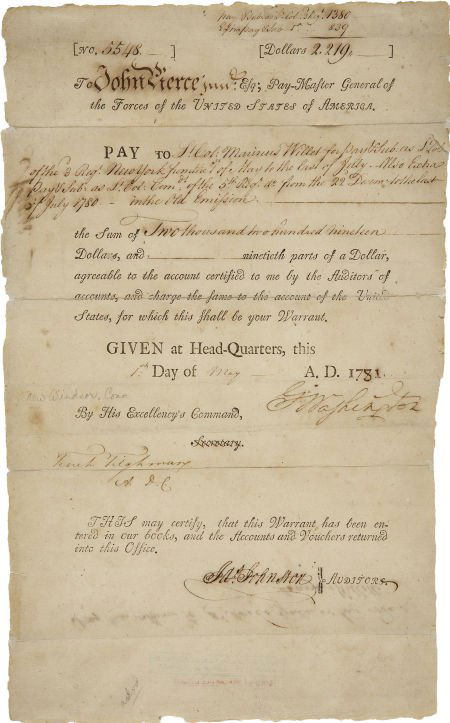 Pay & Subs. as Lt. Col. 1380
Extra pay 839
[No. 5548] [Dollars 2.219]
To John Pierce junr. Esq; Pay-Master General of
the Forces of the UNITED STATES of AMERICA.
PAY TO Lt. Col. Marinus Willet for pay & Sub. as Lt. Col.
of the 3 Regt. New York from 1st. of May to the last of July - Also Extra
Pay & Sub. as Lt. Col. Comt. of the 5th Regt. from the 22 Decem. to the last
of July 1780 - in the Old Emission
the Sum of Two thousand two hundred nineteen
Dollars, and ninetieth parts of a Dollar,
agreeable to the account certified to me by the Auditors of
accounts, and charge the same to the account of the United
States, for which this shall be your Warrant.
GIVEN at Head-Quarters, this
1st. Day of May A. D. 1781.
New Windsor, Conn
Go Washington
By His Excellency's Command,
Secretary.
Tench Tilghman
A D C
THIS may certify, that this Warrant has been en-
tered in our books, and the Accounts and Vouchers returned
into this Office.
Jas. Johnston AUDITORS.